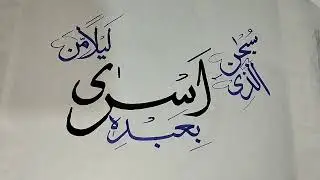 سبحٰن
الذی
اسرٰی
بعبدہٖ
لیلاً من